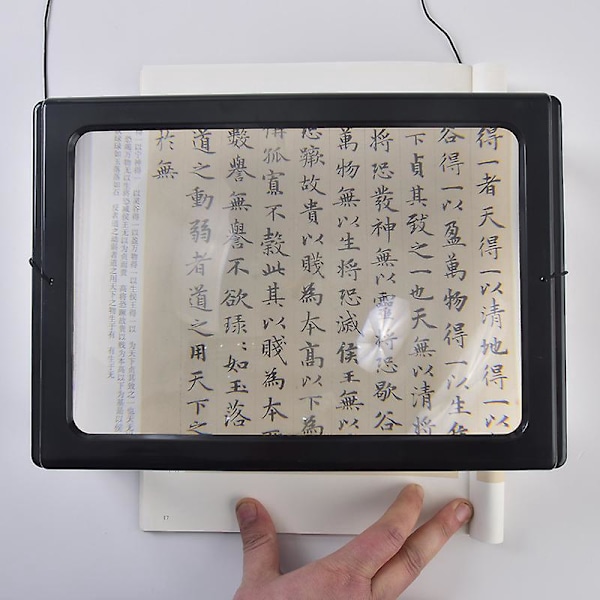 得一者天得一以清地得一以
谷得一以盈萬物得一以生
下貞其致之一也天無以清將
將恐發神無以靈將恐歇谷
萬物無以生將恐滅侯王無以
恐蹶故貴以賤為本高以下為
孤寡不穀此其以賤為本
數譽無譽不欲琭〻如玉落
道之動弱者道之用天下之
於無
道之用天下之物生于有 有生于无
17